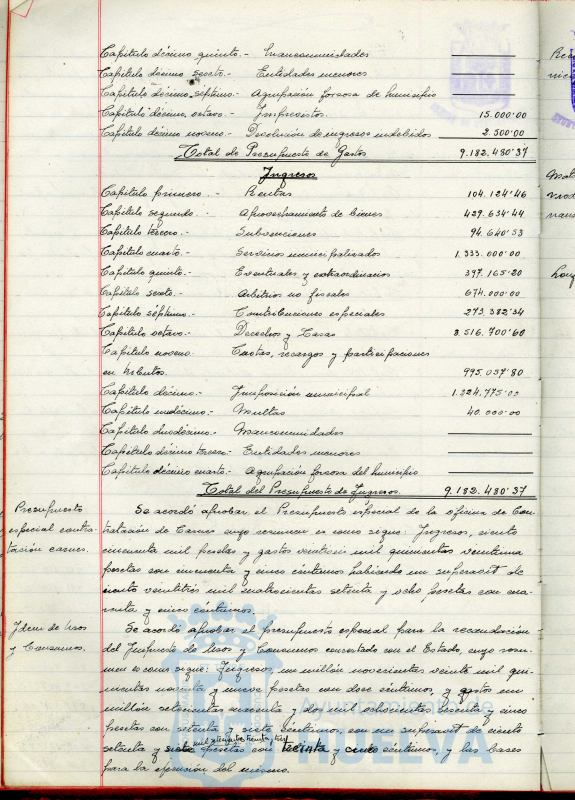 Capítulo décimo quinto.- Mancomunidades
Capítulo décimo sexto.- Entidades menores
Capítulo décimo séptimo.- Agrupación forzosa de municipio
Capítulo décimo octavo.- Imprevistos. 15.000'00
Capítulo décimo noveno.- Devolución de ingresos indebidos 2.500'00
Total de Presupuesto de Gastos 9.182.480'37
Ingresos
Capítulo primero.- Rentas 104.124'46
Capítulo segundo.- Aprovechamiento de bienes 429.634'44
Capítulo tercero.- Subvenciones 94.640'53
Capítulo cuarto.- Servicios municipalizados 1.333.000'00
Capítulo quinto.- Eventuales y extraordinarios 397.165'20
Capítulo sexto.- Arbitrios no fiscales 674.000'00
Capítulo séptimo.- Contribuciones especiales 273.382'34
Capítulo octavo.- Derechos y Tasas 3.516.700'60
Capítulo noveno. Cuotas, recargos y participaciones
en tributos. 995.057'80
Capítulo décimo.- Imposición municipal 1.224.775'00
Capítulo undécimo.- Multas 40.000'00
Capítulo duodécimo.- Mancomunidades
Capítulo décimo tercero.- Entidades menores
Capítulo décimo cuarto.- Agrupación forzosa del municipio
Total del Presupuesto de Ingresos. 9.182.480'37
Presupuesto
especial contra-
tación carnes.
Se acordó aprobar el Presupuesto especial de la oficina de Con-
tratación de Carnes cuyo resumen es como sigue: Ingresos, ciento
cincuenta mil pesetas y gastos veintiseis mil quinientas veintiuna
pesetas con cincuenta y cinco céntimos habiendo un superavit de
ciento veintitres mil cuatrocientas setenta y ocho pesetas con cua-
renta y cinco céntimos.
Idem de Usos
y Consumos.
Se acordó aprobar el presupuesto especial para la recaudación
del Impuesto de Usos y Consumos concertado con el Estado, cuyo resu-
men es como sigue: Ingresos, un millón novecientas veinte mil qui-
nientas noventa y nueve pesetas con doce céntimos, y gastos un
millón setecientas cuarenta y dos mil ochocientas sesenta y cinco
pesetas con setenta y siete céntimos, con un superavit de ciento
mil setecientas treinta y tres
setenta y siete pesetas con treinta y cinco céntimos, y las bases
para la ejecución del mismo.
HUELVA